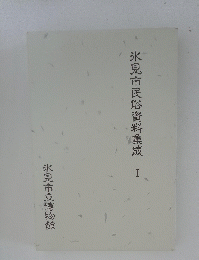 氷見市民俗資料集成 I
氷見市立博物館